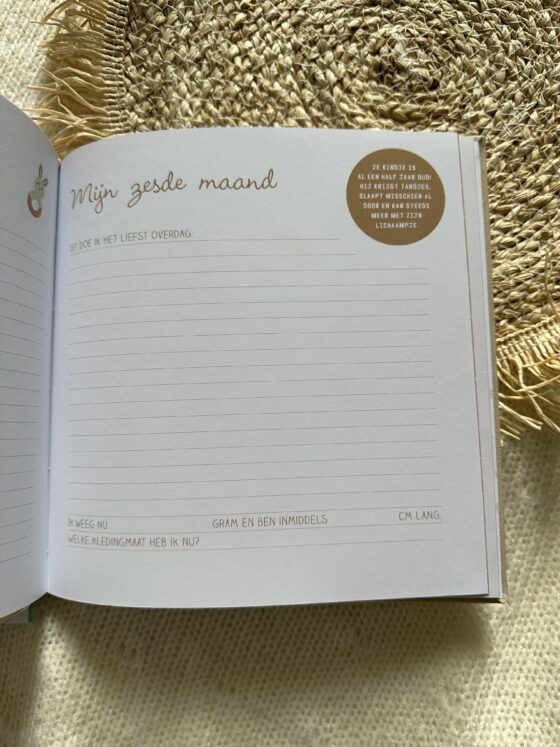 Mijn zesde maand
JE KINDJE IS
AL EEN HALF JAAR OUD!
HIJ KRIJGT TANDJES,
SLAAPT MISSCHIEN AL
DOOR EN KAN STEEDS
MEER MET ZIJN
LICHAAMPJE.
DIT DOE IK HET LIEFST OVERDAG:
IK WEEG NU GRAM EN BEN INMIDDELS CM LANG.
WELKE KLEDINGMAAT HEB IK NU?